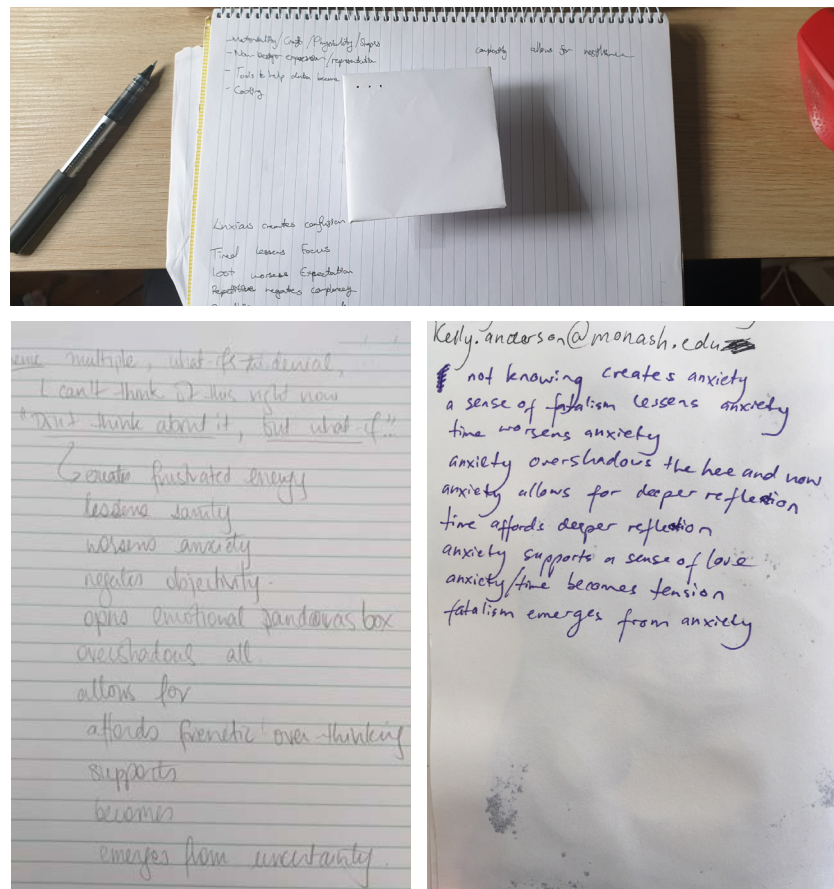 - Materiality/Craft/Physicality/Shapes
- Non design expression/representation
- Tools to help data become
- Coding
complexity allows for
Anxious creates confusion
Tired lessens Focus
Loot worsens Expectation
Repetitive negates complacency
multiple, what-ifs
I can't think of this right now
"Don't think about it, but what-if.."
creates frustrated energy
lessens sanity
worsens anxiety
negates objectivity.
opens emotional pandoras box
overshadows all.
allows for
affords frenetic over-thinking
supports
becomes
emerges from uncertainty.
Kelly.anderson@monash.edu
not knowing creates anxiety
a sense of fatalism lessens anxiety
time worsens anxiety
anxiety overshadows the hee and now
anxiety allows for deeper reflection
time affords deeper reflection
anxiety supports a sense of love
anxiety/time becomes tension
fatalism emerges from anxiety